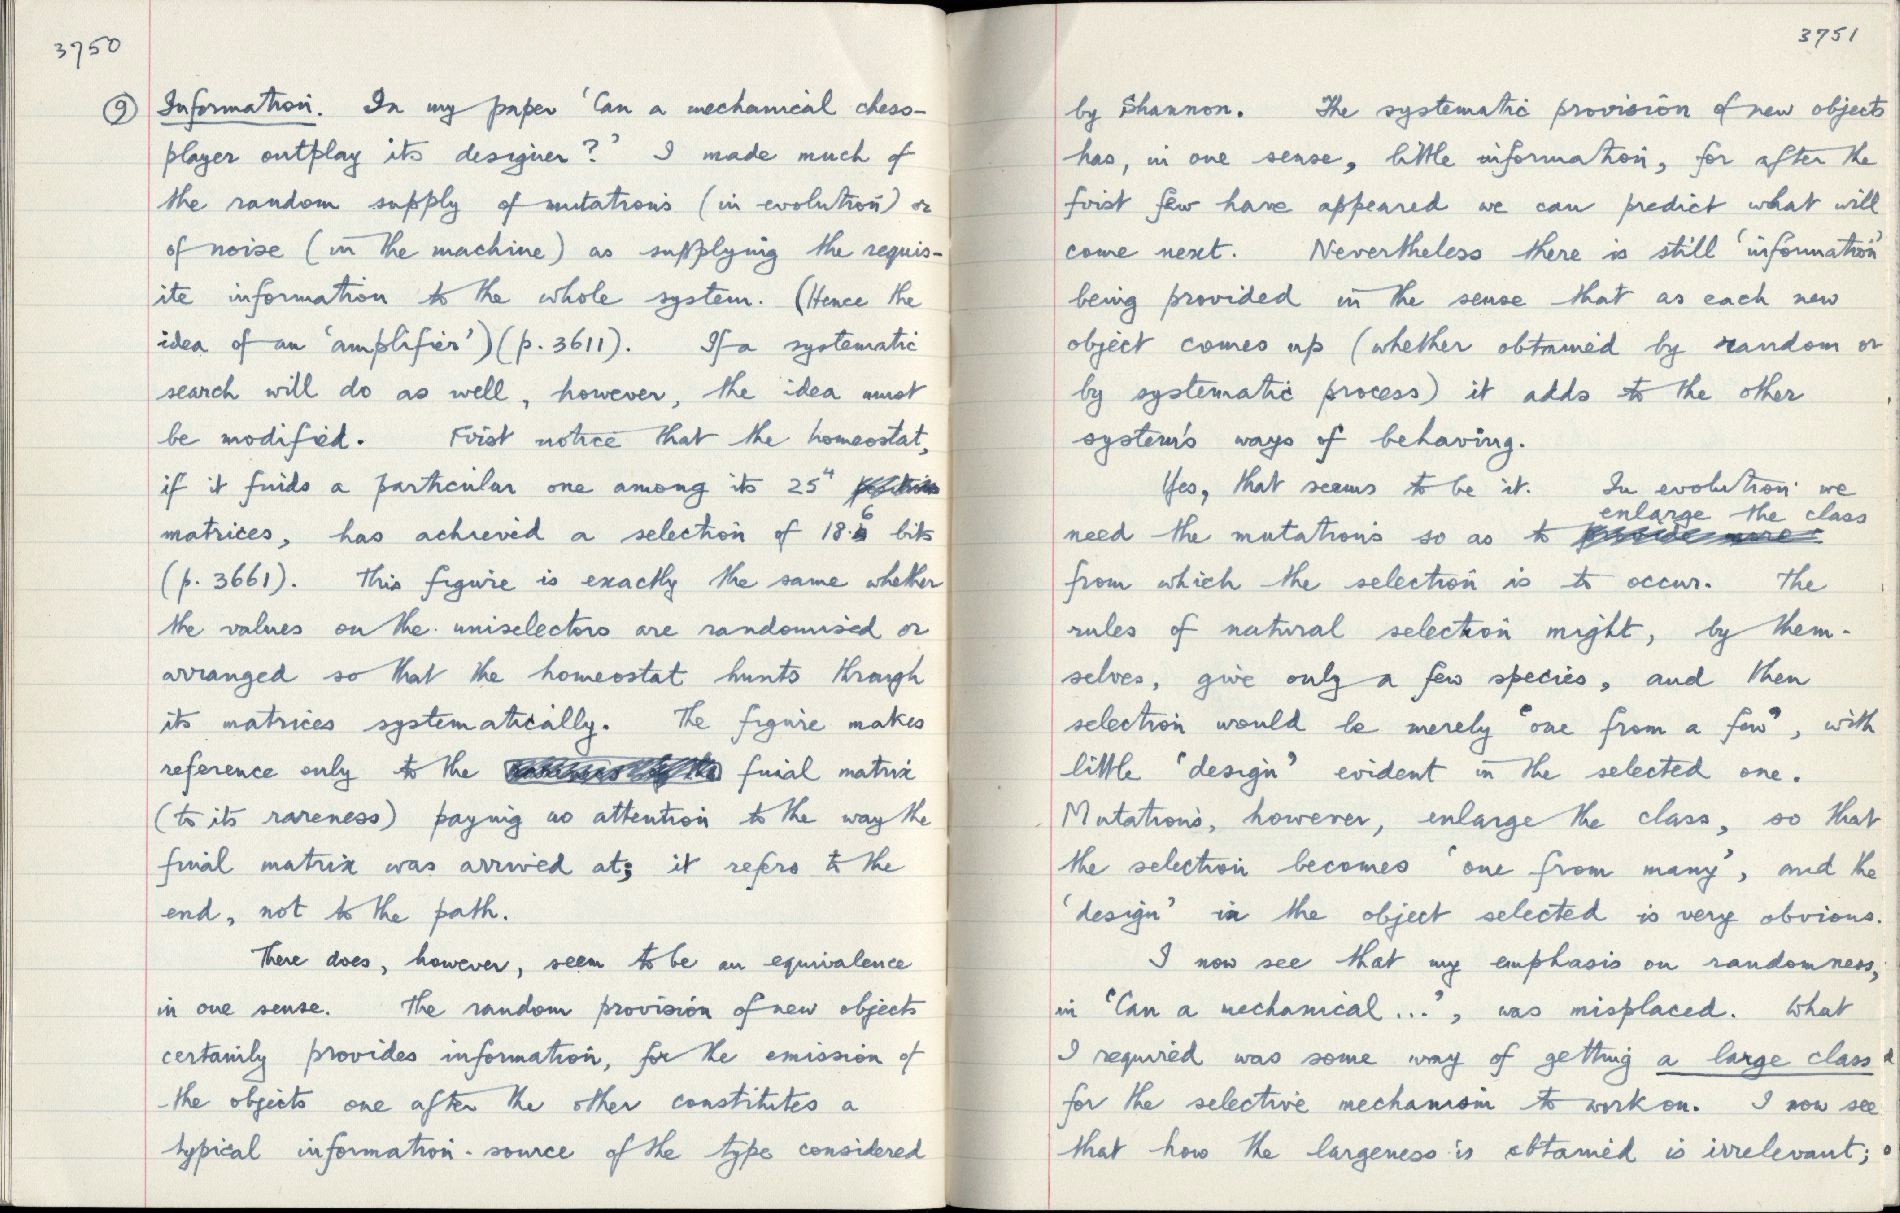 3750
⑨ Information. In my paper 'Can a mechanical chess-
player outplay its designer?' I made much of
the random supply of mutations (in evolution) or
of noise (in the machine) as supplying the requis-
ite information to the whole system. (Hence the
idea of an 'amplifier')(p. 3611). If a systematic
search will do as well, however, the idea must
be modified. First notice that the homeostat,
if it finds a particular one among its 25⁴
matrices, has achieved a selection of 18.6 bits
(p. 3661). This figure is exactly the same whether
the values on the uniselectors are randomised or
arranged so that the homeostat hunts through
its matrices systematically. The figure makes
reference only to the final matrix
(to its rareness) paying no attention to the way the
final matrix was arrived at; it refers to the
end, not to the path.
There does, however, seem to be an equivalence
in one sense. The random provision of new objects
certainly provides information, for the emission of
the objects one after the other constitutes a
typical information-source of the type considered
3751
by Shannon. The systematic provision of new objects
has, in one sense, little information, for after the
first few have appeared we can predict what will
come next. Nevertheless there is still 'information'
being provided in the sense that as each new
object comes up (whether obtained by random or
by systematic process) it adds to the other
system's ways of behaving.
Yes, that seems to be it. In evolution we
need the mutations so as to enlarge the class
from which the selection is to occur. The
rules of natural selection might, by them-
selves, give only a few species, and then
selection would be merely 'one from a few', with
little 'design' evident in the selected one.
Mutations, however, enlarge the class, so that
the selection becomes 'one from many', and the
'design' in the object selected is very obvious.
I now see that my emphasis on randomness,
in 'Can a mechanical ...', was misplaced. What
I required was some way of getting a large class
for the selective mechanism to work on. I now see
that how the largeness is obtained is irrelevant;